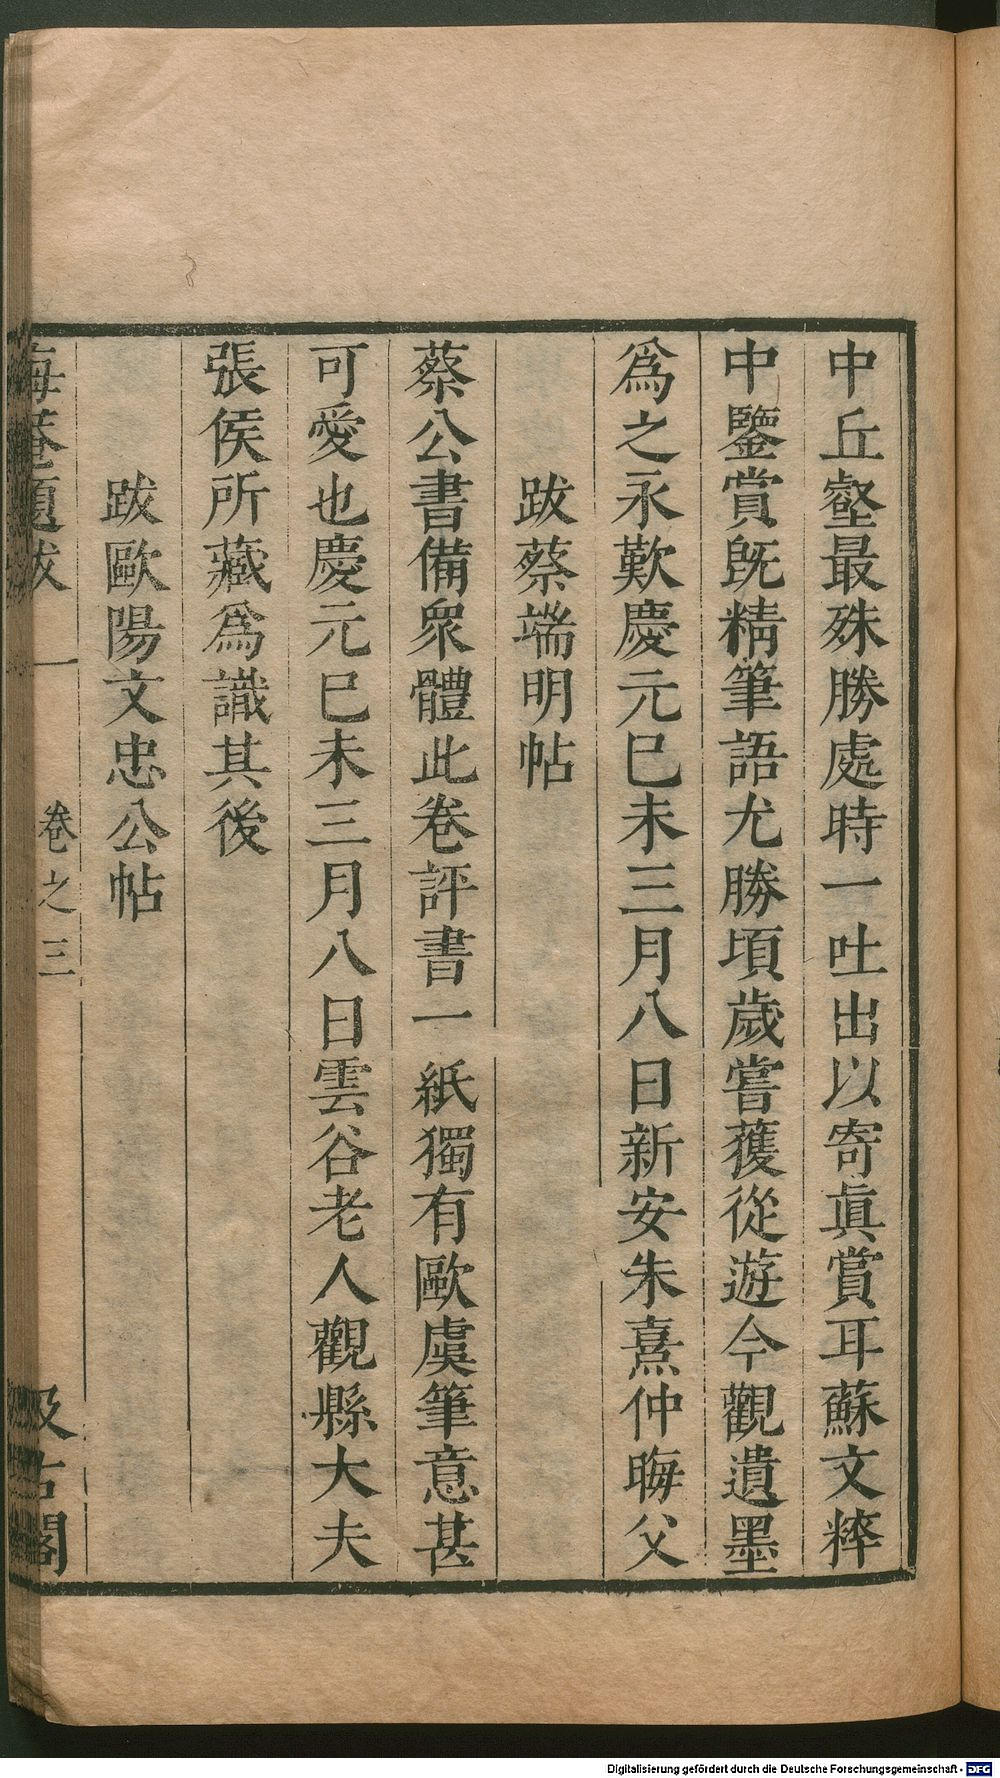 中丘壑最殊勝處時一吐出以寄眞賞耳蘇文粹
中鑒賞旣精筆語尤勝頃歲嘗獲從遊今觀遺墨
爲之永歎慶元巳未三月八日新安朱熹仲晦父
跋蔡端明帖
蔡公書備衆體此卷評書一紙獨有歐虞筆意甚
可愛也慶元巳未三月八日雲谷老人觀縣大夫
張侯所藏爲識其後
跋歐陽文忠公帖
晦菴題跋 一 卷之三 汲古閣
Digitalisierung gefördert durch die Deutsche Forschungsgemeinschaft - DFG